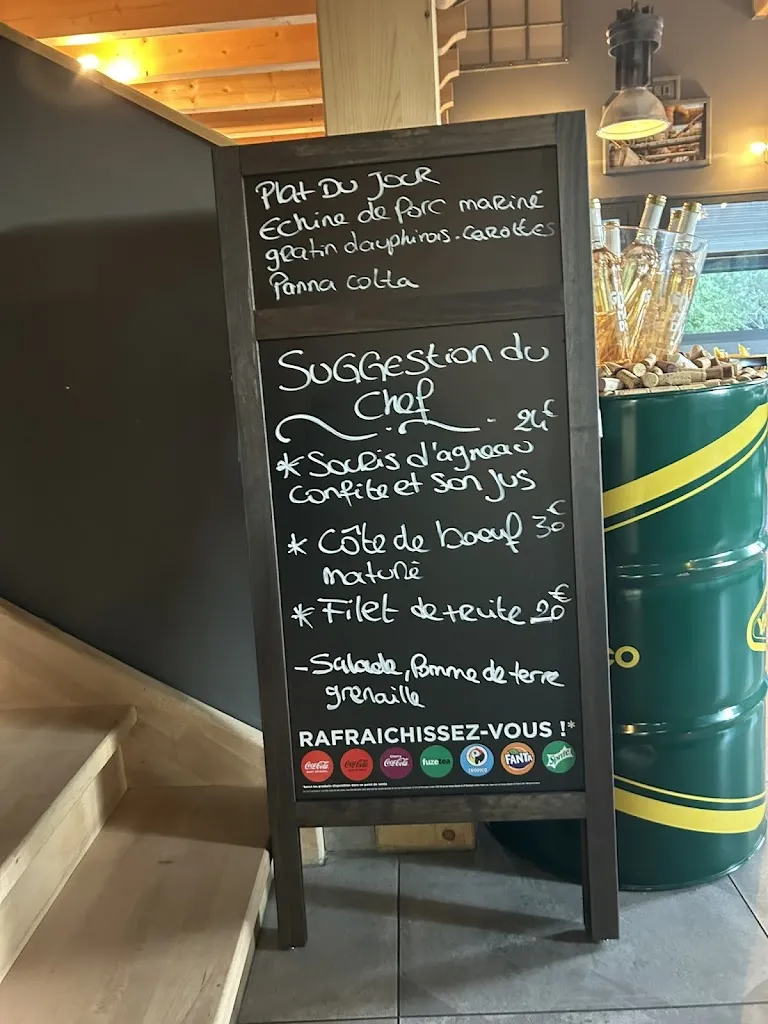 Plat Du Jour
Echine de Porc mariné
gratin dauphinois. carottes
Panna cotta
Suggestion du
Chef
24€
* Souris d'agneau
confite et son jus
* Côte de boeuf 30€
maturé
* Filet de truite 20€
- Salade, Pomme de terre
grenaille
RAFRAICHISSEZ-VOUS !*
Coca-Cola Coca-Cola Cherry Coca-Cola fuzetea TROPICO FANTA Sprite